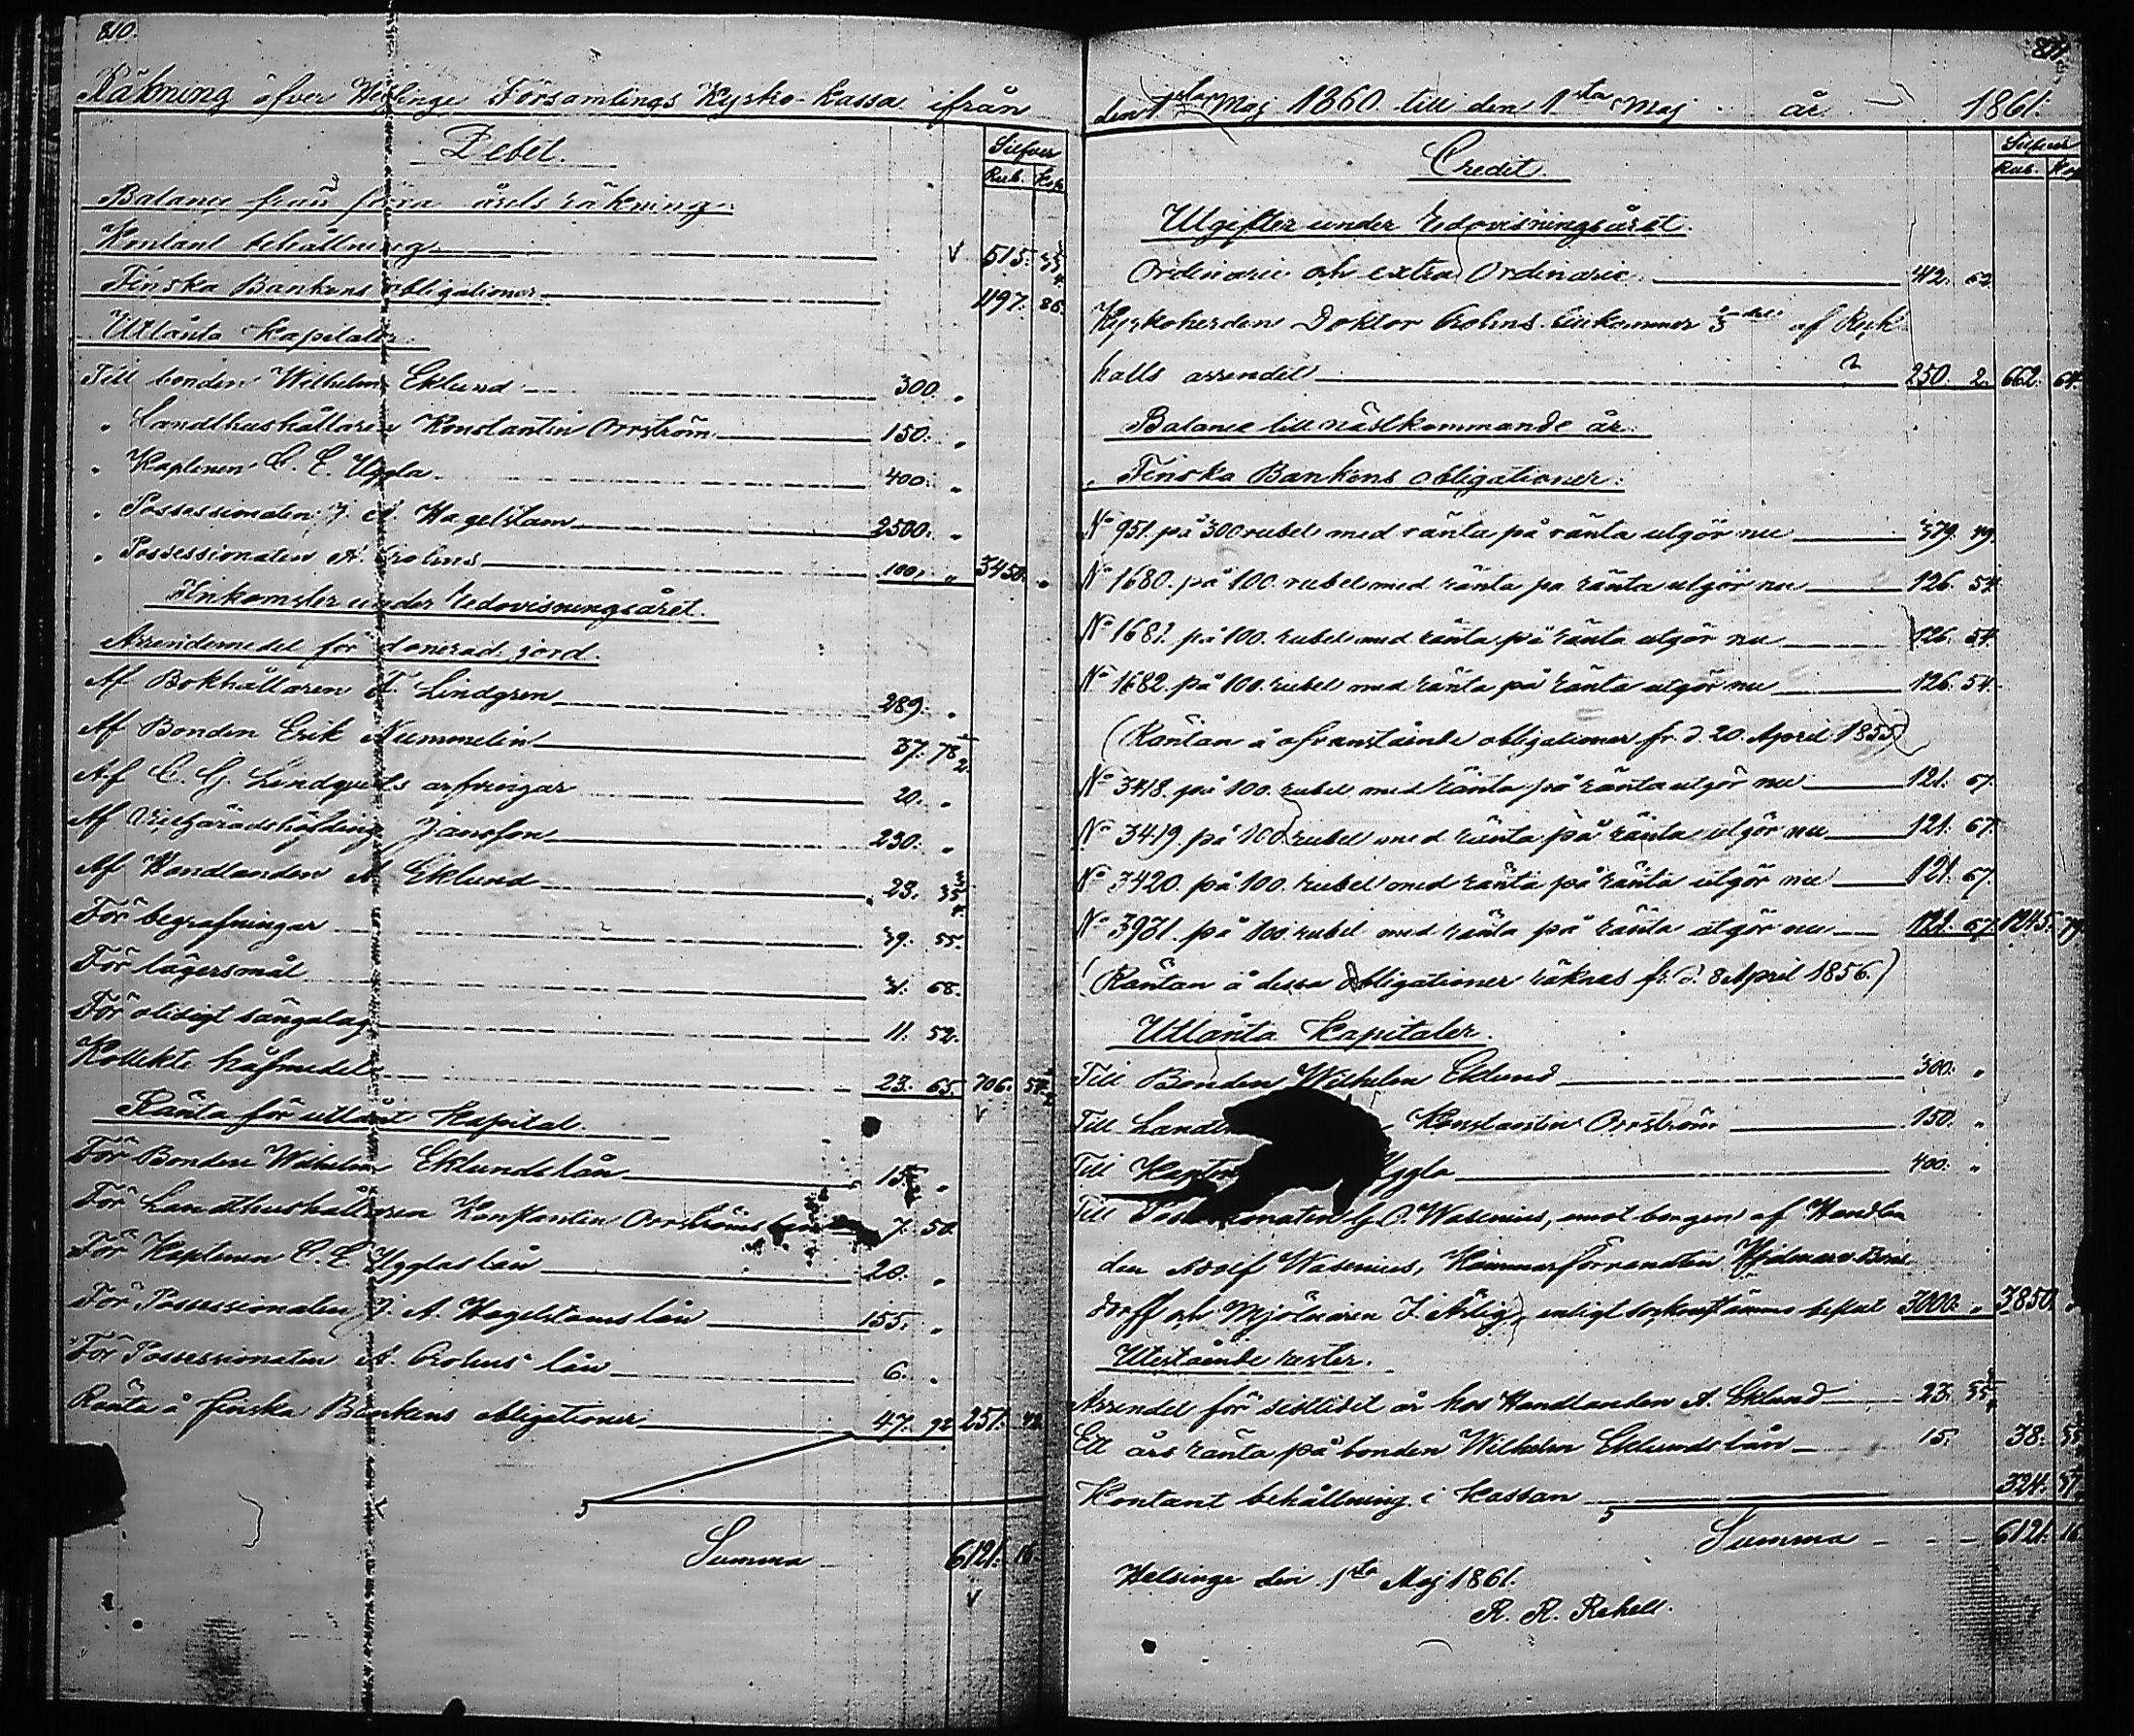 210.
Räkning öfver Helsinge Församlings Kyrko-kassa ifrån
Debet.
Silfver
Rub. Kop
Balance från förra årets räkning.
Kontant behållning 515.
Finska Bankens obligationer 1197. 86.
Utlånta Kapitaler.
Till bonden Wilhelm Eklund 300. "
" Landthushållaren Konstantin Orrström 150. "
" Kaptenen C. E. Uggla 400. "
" Possessionaten J. A. Hagelstam 2500. "
" Possessionaten A. Crohns 100. " 3450. "
Inkomster under redovisningsåret.
Arrendemedel för donerad jord.
Af Bokhållaren A. Lindgren 289. "
Af Bonden Erik Nummelin 37. 78 1/2.
Af C. G. Lindqvists arfvingar 20. "
Af Vicehäradshöfding Jansson 230. "
Af Handlanden A Eklund 23. 35 3/4
För begrafningar 39. 55.
För lägersmål 31. 68.
För olidigt sängalag 11. 52.
Kollekt håfmedel 23. 65. 706. 54 1/2
Ränta för utlånt Kapital
För Bonden Wilhelm Eklunds lån 15. "
För Landthushållaren Konstantin Orrströms 7. 50.
För Kaptenen C. E Ugglas lån 20. "
För Possessionaten J. A. Hagelstams lån 155. "
För Possessionaten A. Crohns lån 6. "
Ränta å finska Bankens obligationer 47. 92 251. 42
Summa 6121. 16.
211.
den 1sta Maj 1860 till den 1sta Maj år 1861.
Silfver
Rub. Kop
Credit.
Utgifter under Redovisningsåret.
Ordinarie och extra Ordinarie 412. 62.
Kyrkoherden Doktor Crohns tillkommer af Kyrk
halls arrendet 250. 2. 662. 64.
Balance till nästkommande år.
Finska Bankens obligationer.
No 951. på 300 rubel med ränta på ränta utgör nu 379. 49.
No 1680. på 100. rubel med ränta på ränta utgör nu 126. 54
No 1681. på 100. rubel med ränta på ränta utgör nu 126. 54.
No 1682. på 100. rubel med ränta på ränta utgör nu 126. 54.
(Räntan å ofvanstående obligationer fr. d. 20. April 1855)
No 3418. på 100. rubel med ränta på ränta utgör nu 121. 67.
No 3419. på 100 rubel med ränta på ränta utgör nu 121. 67.
No 3420. på 100. rubel med ränta på ränta utgör nu 121. 67.
No 3931. på 100. rubel med ränta på ränta utgör nu 121. 67. 1245. 79
(Räntan å dessa Obligationer räknas fr. d. 8 April 1856.)
Utlånta Kapitaler.
Till Bonden Wilhelm Eklund 300. "
Till Konstantin Orrström 150. "
Till Uggla 400. "
Till G. O. Wasenius, emot borgen af Handlan
den Adolf Wasenius, Kammarförvandten Hjalmar
dorff och Mjölnaren J. Ärlig, enligt sockenstämmo beslut 3000. " 3850. "
Utestående rester.
Arrendet för sistlidet år hos Handlanden A. Eklund 23. 35 3/4
Ett års ränta på bonden Wilhelm Eklunds lån 15. 38.
Kontant behållning i Kassan 324.
Summa 6121. 16
Helsinge den 1sta Maj 1861.
R. R. Rehell.